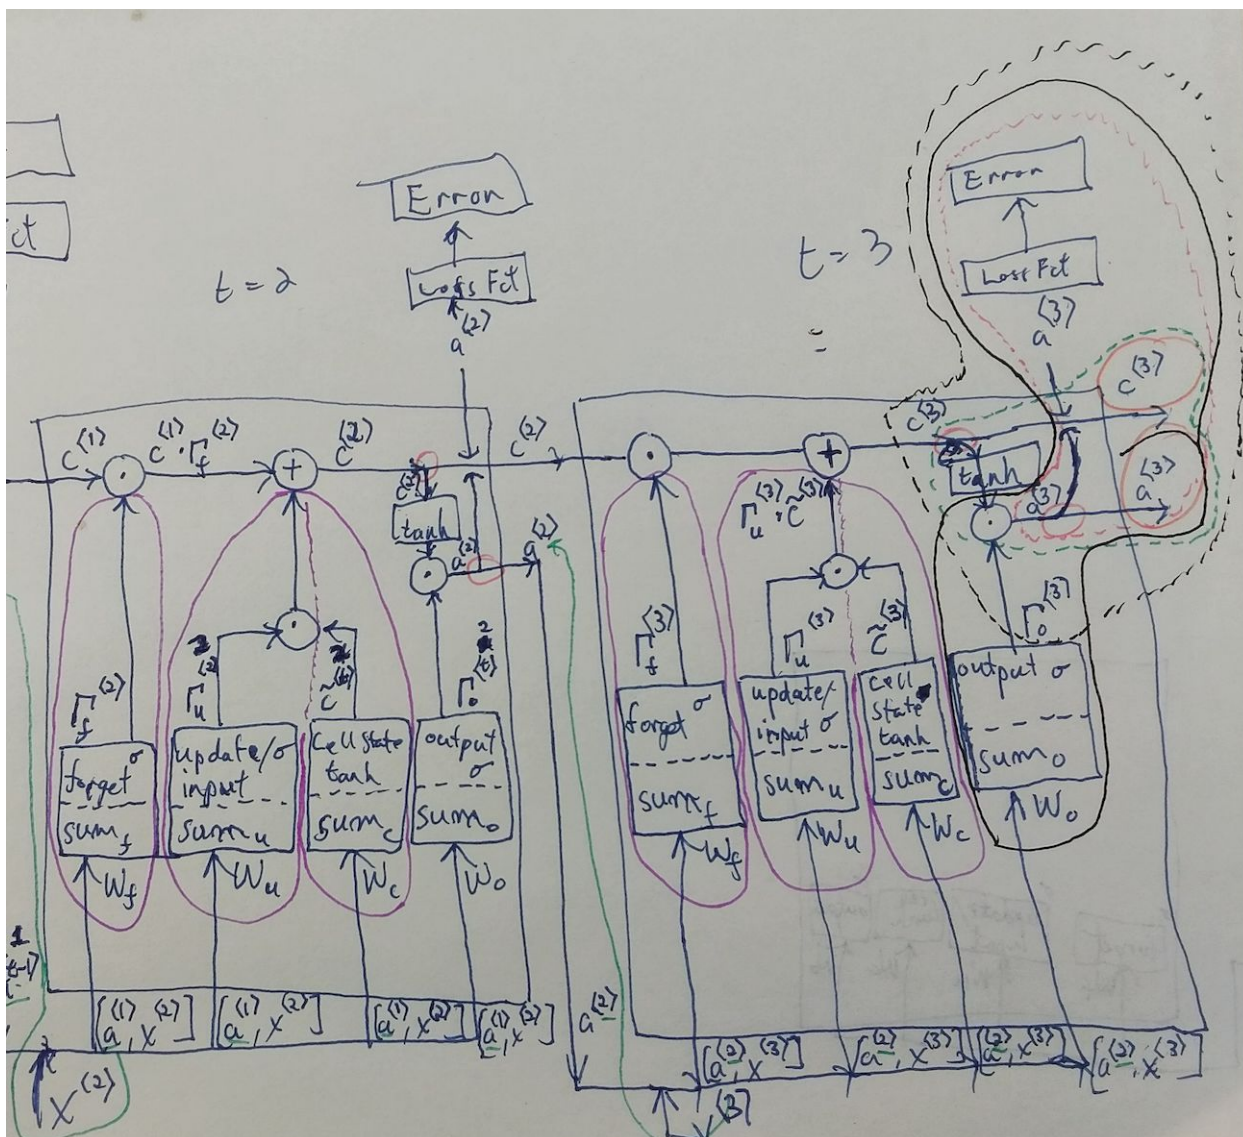 ct
Error
Loss Fct
a⟨2⟩
t = 2
c⟨1⟩
c⟨1⟩ · Γf⟨2⟩
+
c⟨2⟩
c⟨2⟩
c⟨2⟩
tanh
a⟨2⟩
a⟨2⟩
Γf⟨2⟩
Γu⟨2⟩
c̃⟨t⟩ 2
Γo⟨t⟩ 2
forget σ
sumf
update/σ
input
sumu
cell state
tanh
sumc
output
σ
sumo
Wf
Wu
Wc
Wo
1
⟨t-1⟩
[a⟨1⟩, x⟨2⟩]
[a⟨1⟩, x⟨2⟩]
[a⟨1⟩, x⟨2⟩]
[a⟨1⟩, x⟨2⟩]
x⟨2⟩
Error
Loss Fct
a⟨3⟩
t = 3
=
+
c⟨3⟩
c⟨3⟩
tanh
a⟨3⟩
a⟨3⟩
Γu⟨3⟩ · c̃⟨3⟩
Γf⟨3⟩
Γu⟨3⟩
c̃⟨3⟩
Γo⟨3⟩
forget σ
sumf
update/
input σ
sumu
cell
state
tanh
sumc
output σ
sumo
Wf
Wu
Wc
Wo
a⟨2⟩
[a⟨2⟩, x⟨3⟩]
[a⟨2⟩, x⟨3⟩]
[a⟨2⟩, x⟨3⟩]
[a⟨2⟩, x⟨3⟩]
x⟨3⟩